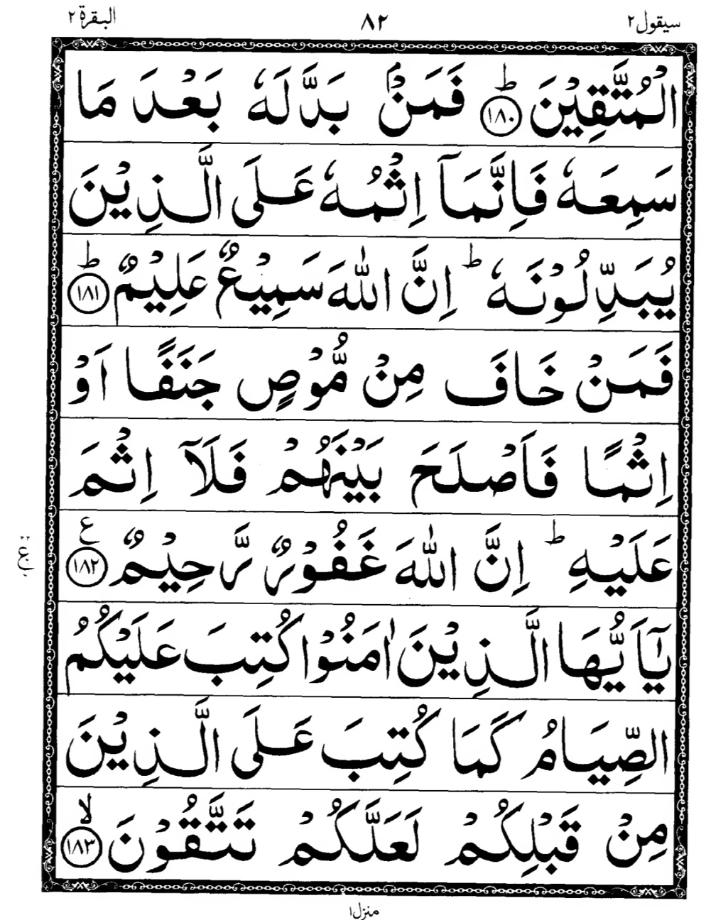 البقرة ٢
٨٢
سيقول ٢
الْمُتَّقِيْنَ ؕ﴿۱۸۰﴾ فَمَنْۢ بَدَّلَهٗ بَعْدَ مَا
سَمِعَهٗ فَاِنَّمَاۤ اِثْمُهٗ عَلَى الَّذِيْنَ
يُبَدِّلُوْنَهٗ ؕ اِنَّ اللّٰهَ سَمِيْعٌ عَلِيْمٌ ؕ﴿۱۸۱﴾
فَمَنْ خَافَ مِنْ مُّوْصٍ جَنَفًا اَوْ
اِثْمًا فَاَصْلَحَ بَيْنَهُمْ فَلَاۤ اِثْمَ
عَلَيْهِ ؕ اِنَّ اللّٰهَ غَفُوْرٌ رَّحِيْمٌ ﴿۱۸۲﴾ ع
يٰۤاَيُّهَا الَّذِيْنَ اٰمَنُوْا كُتِبَ عَلَيْكُمُ
الصِّيَامُ كَمَا كُتِبَ عَلَى الَّذِيْنَ
مِنْ قَبْلِكُمْ لَعَلَّكُمْ تَتَّقُوْنَ ۙ﴿۱۸۳﴾
منزل ١